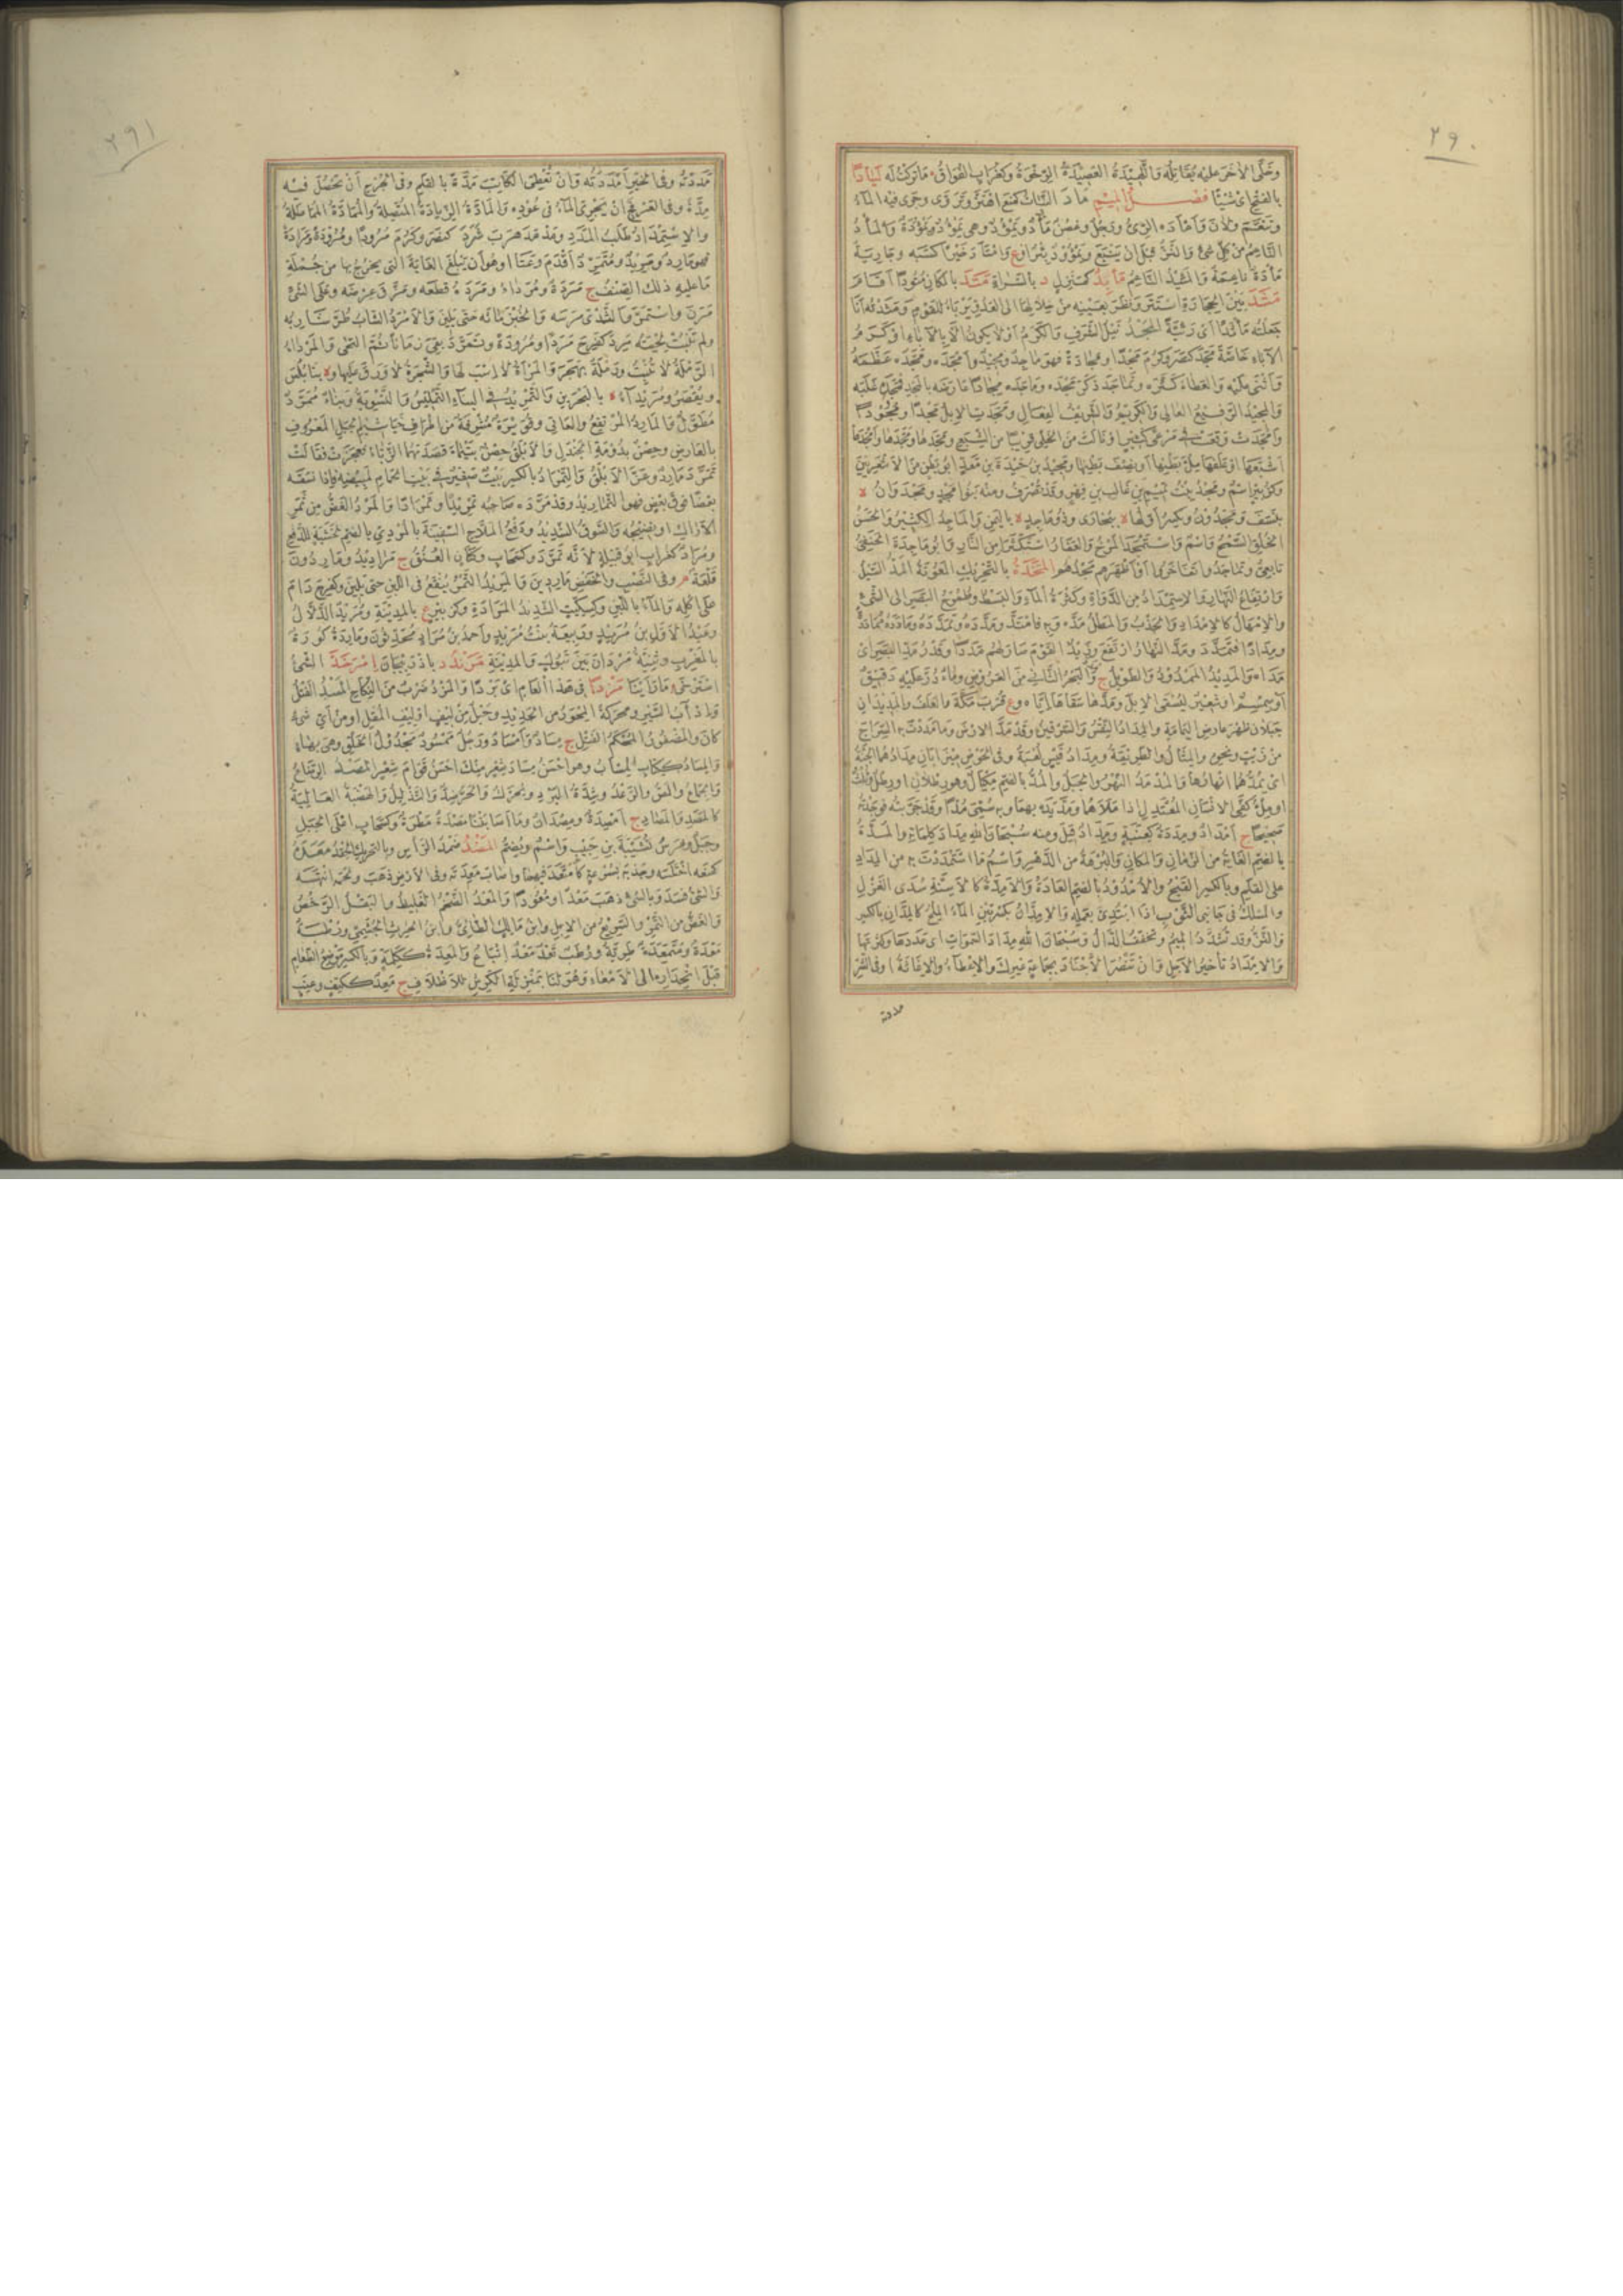 ٢٩٠
وخلّى الآخر عليه يقاتله والنهيدة العصيدة الرخوة وكغراب الفواق ما تركت له لَيادًا
بالفتح اى شيئا فصل الميم مَأدَ النبات كمنع اهتز وتروى وجرى فيه الماء
وتنعم ولان وامأده الرىّ ورجل وغصن مأد ويمؤد وهى يمؤد ويمؤدة والمأد
الناعم من كل شئ والنز قبل ان ينبع ويمؤود بئر او ع وامتأد خيرا كسبه وجارية
مأدة ناعمة والمئيد الناعم مَأْبِد كمنزل د بالسراة مَتَدَ بالمكان متودا اقام
مَثَدَ بين الحجارة استتر ونظر بعينيه من خلالها الى العدو يربأ للقوم ومثدته انا
جعلته ماثدا اى ربيئة المجد نيل الشرف والكرم او لا يكون الا بالآباء او كرم
الآباء خاصة مجد كنصر وكرم مجدا ومجادة فهو ماجد ومجيد وامجده ومجده عظمه
واثنى عليه والعطاء كثره وتماجد ذكر مجده وماجده مجادا عارضه بالمجد فمجده غلبه
والمجيد الرفيع العالى والكريم والشريف الفعال ومجدت الابل مجدا ومجودا
وامجدت وقعت فى مرعى كثير او نالت من الخلى قريبا من الشبع ومجدها ومجّدها وامجدها
اشبعها او علفها ملء بطنها او نصف بطنها ومجيد بن حيدة بن معد ابو بطن من الاشعريين
وكزبير اسم ومجد بنت تميم بن غالب بن فهر وقد تصرف ومنه بنو مجد ومجدوان ة
بنسف ومجدون وكسر اولها ة ببخارى وذو ماجد ة باليمن والماجد الكثير والحسن
الخلق السمح واسم واستمجد المرخ والعفار استكثرا من النار وابو ماجدة الحنفى
تابعى وتماجدوا تفاخروا واظهروا مجدهم المَخْدَة بالتحريك المعونة المد السيل
وارتفاع النهار والاستمداد من الدواة وكثرة الماء والبسط وطموح البصر الى الشئ
والامهال كالامداد والجذب والمطل مده وبه فامتد ومدده وتمدده ومادده مُمادّة
ومدادا فتمدد ومد النهار ارتفع وزيد القوم صار لهم مددا وقدر مد البصر اى
مداه والمديد الممدود والطويل ج والبحر الثانى من العروض وماء ذر عليه دقيق
او سمسم او شعير ليسقى الابل ومدها سقاها اياه وع قرب مكة والعلف والمديدان
جبلان ظهر عارض اليمامة والمداد النقس والسرقين وقد مد الارض وما مددت به السراج
من زيت ونحوه والمثال والطريقة ومداد قيس لعبة وفى الحوض ميزابان مدادهما الجنة
اى تمدهما انهارها والمدمد النهر والحبل والمد بالضم مكيال وهو رطلان او رطل وثلث
او ملء كفى الانسان المعتدل اذا ملأهما ومد يده بهما وبه سمى مدا وقد جربته فوجدته
صحيحا ج امداد ومددة كعنبة ومداد قيل ومنه سبحان الله مداد كلماته والمدة
بالضم الغاية من الزمان والمكان والبرهة من الدهر واسم ما استمددت به من المداد
على القلم وبالكسر القيح والامدود بالضم العادة والامدة كالاسنة سدى الغزل
والمساك فى جانبى الثوب اذا ابتدئ بعمله والامدان بكسرتين الماء الملح كالمدان بالكسر
والنز وقد تشدد الميم وتخفف الدال وسبحان الله مداد السموات اى عددها وكثرتها
والامداد تأخير الاجل وان تنصر الاجناد بجماعة غيرك والاعطاء والاغاثة او فى الشر
مددته
٢٩١
مددته وفى الخير امددته وان تعطى الكاتب مدة بالقلم وفى الجرح ان تحصل فيه
مدة وفى العرفج ان يجرى الماء فى عوده والمادة الزيادة المتصلة والممادة المماطلة
والاستمداد طلب المدد ومدمد هرب مَرَدَ كنصر وكرم مرودا ومرودة ومرادة
فهو مارد ومريد ومتمرد اقدم وعتا او هو ان يبلغ الغاية التى يخرج بها من جملة
ما عليه ذلك الصنف ج مردة ومرداء ومرده قطعه ومزق عرضه وعلى الشئ
مرن واستمر والثدى مرسه والخبز ماثه حتى يلين والامرد الشاب طر شاربه
ولم تنبت لحيته مرد كفرح مردا ومرودة وتمرد بقى زمانا ثم التحى والمرداء
الرملة لا تنبت ورملة بهجر والمرأة لا اسب لها والشجرة لا ورق عليها وة بنابلس
ويقصر ومريداء ة بالبحرين والتمريد فى البناء التمليس والتسوية وبناء ممرد
مطول والمارد المرتفع والعاتى وقويرة مشرفة من اطراف خياشيم الجبل المعروف
بالعارض وحصن بدومة الجندل والابلق حصن بتيماء قصدتهما الزباء فعجزت فقالت
تمرد مارد وعز الابلق والتمراد بالكسر بيت صغير فى بيت الحمام لمبيضه فاذا نسقه
بعضا فوق بعض فهو التماريد وقد مرده صاحبه تمريدا وتمرادا والمرد الغض من ثمر
الاراك او نضيجه والسوق الشديد ودفع الملاح السفينة بالمردى بالضم لخشبة للدفع
ومراد كغراب ابو قبيلة لانه تمرد وكسحاب وكتان العنق ج مراديد وماردون
قلعة م وفى النصب والخفض ماردين والمريد التمر ينقع فى اللبن حتى يلين وكفرح دام
على اكله والماء باللبن وكسكيت الشديد المرادة وكزبير ع بالمدينة ومريد الدلال
وعبد الاول بن مريد وربيعة بنت مريد واحمد بن مراد محدثون وماردة كورة
بالمغرب وثنية مردان بين تبوك والمدينة مَرَنْد د باذربيجان امْرَخَدَّ الشئ
استرخى ما رأينا مَزْدًا فى هذا العام اى بردا والمزد ضرب من النكاح المَسْد الفتل
وادآب السير ومحركة المحور من الحديد وحبل من ليف او ليف المقل او من اى شئ
كان والمضفور المحكم الفتل ج مساد وامساد ورجل ممسود مجدول الخلق وهى بهاء
والمساد ككتاب المسأب وهو احسن مساد شعر منك احسن قوام شعر المَصْد الرضاع
والجماع والمص والرعد وشدة البرد ويحرك والحر ضد والتذليل والهضبة العالية
كالمصد والمصاد ج امصدة ومصدان وما اصابتنا مصدة مطرة وكسحاب اعلى الجبل
وجبل وفرس نبيشة بن حبيب واسم ويضم المَضْد ضمد الرأس وبالتحريك الحقد مَعَدَه
كمنعه اختلسه وجذبه بسرعة كامتعد فيهما واصاب معدته وفى الارض ذهب ولحمه انتهسه
والشئ فسد وبالشئ ذهب معدا ومعودا والمعد الضخم الغليظ والبقل الرخص
والغض من الثمر والسريع من الابل وابن مالك الطائى وابن الحرث الجشمى ورطبة
معدة ومتمعدة طرية ورطب ثعد معد اتباع والمعدة ككلمة وبالكسر موضع الطعام
قبل انحداره الى الامعاء وهو لنا بمنزلة الكرش للاظلاف ج معد ككتف وعنب